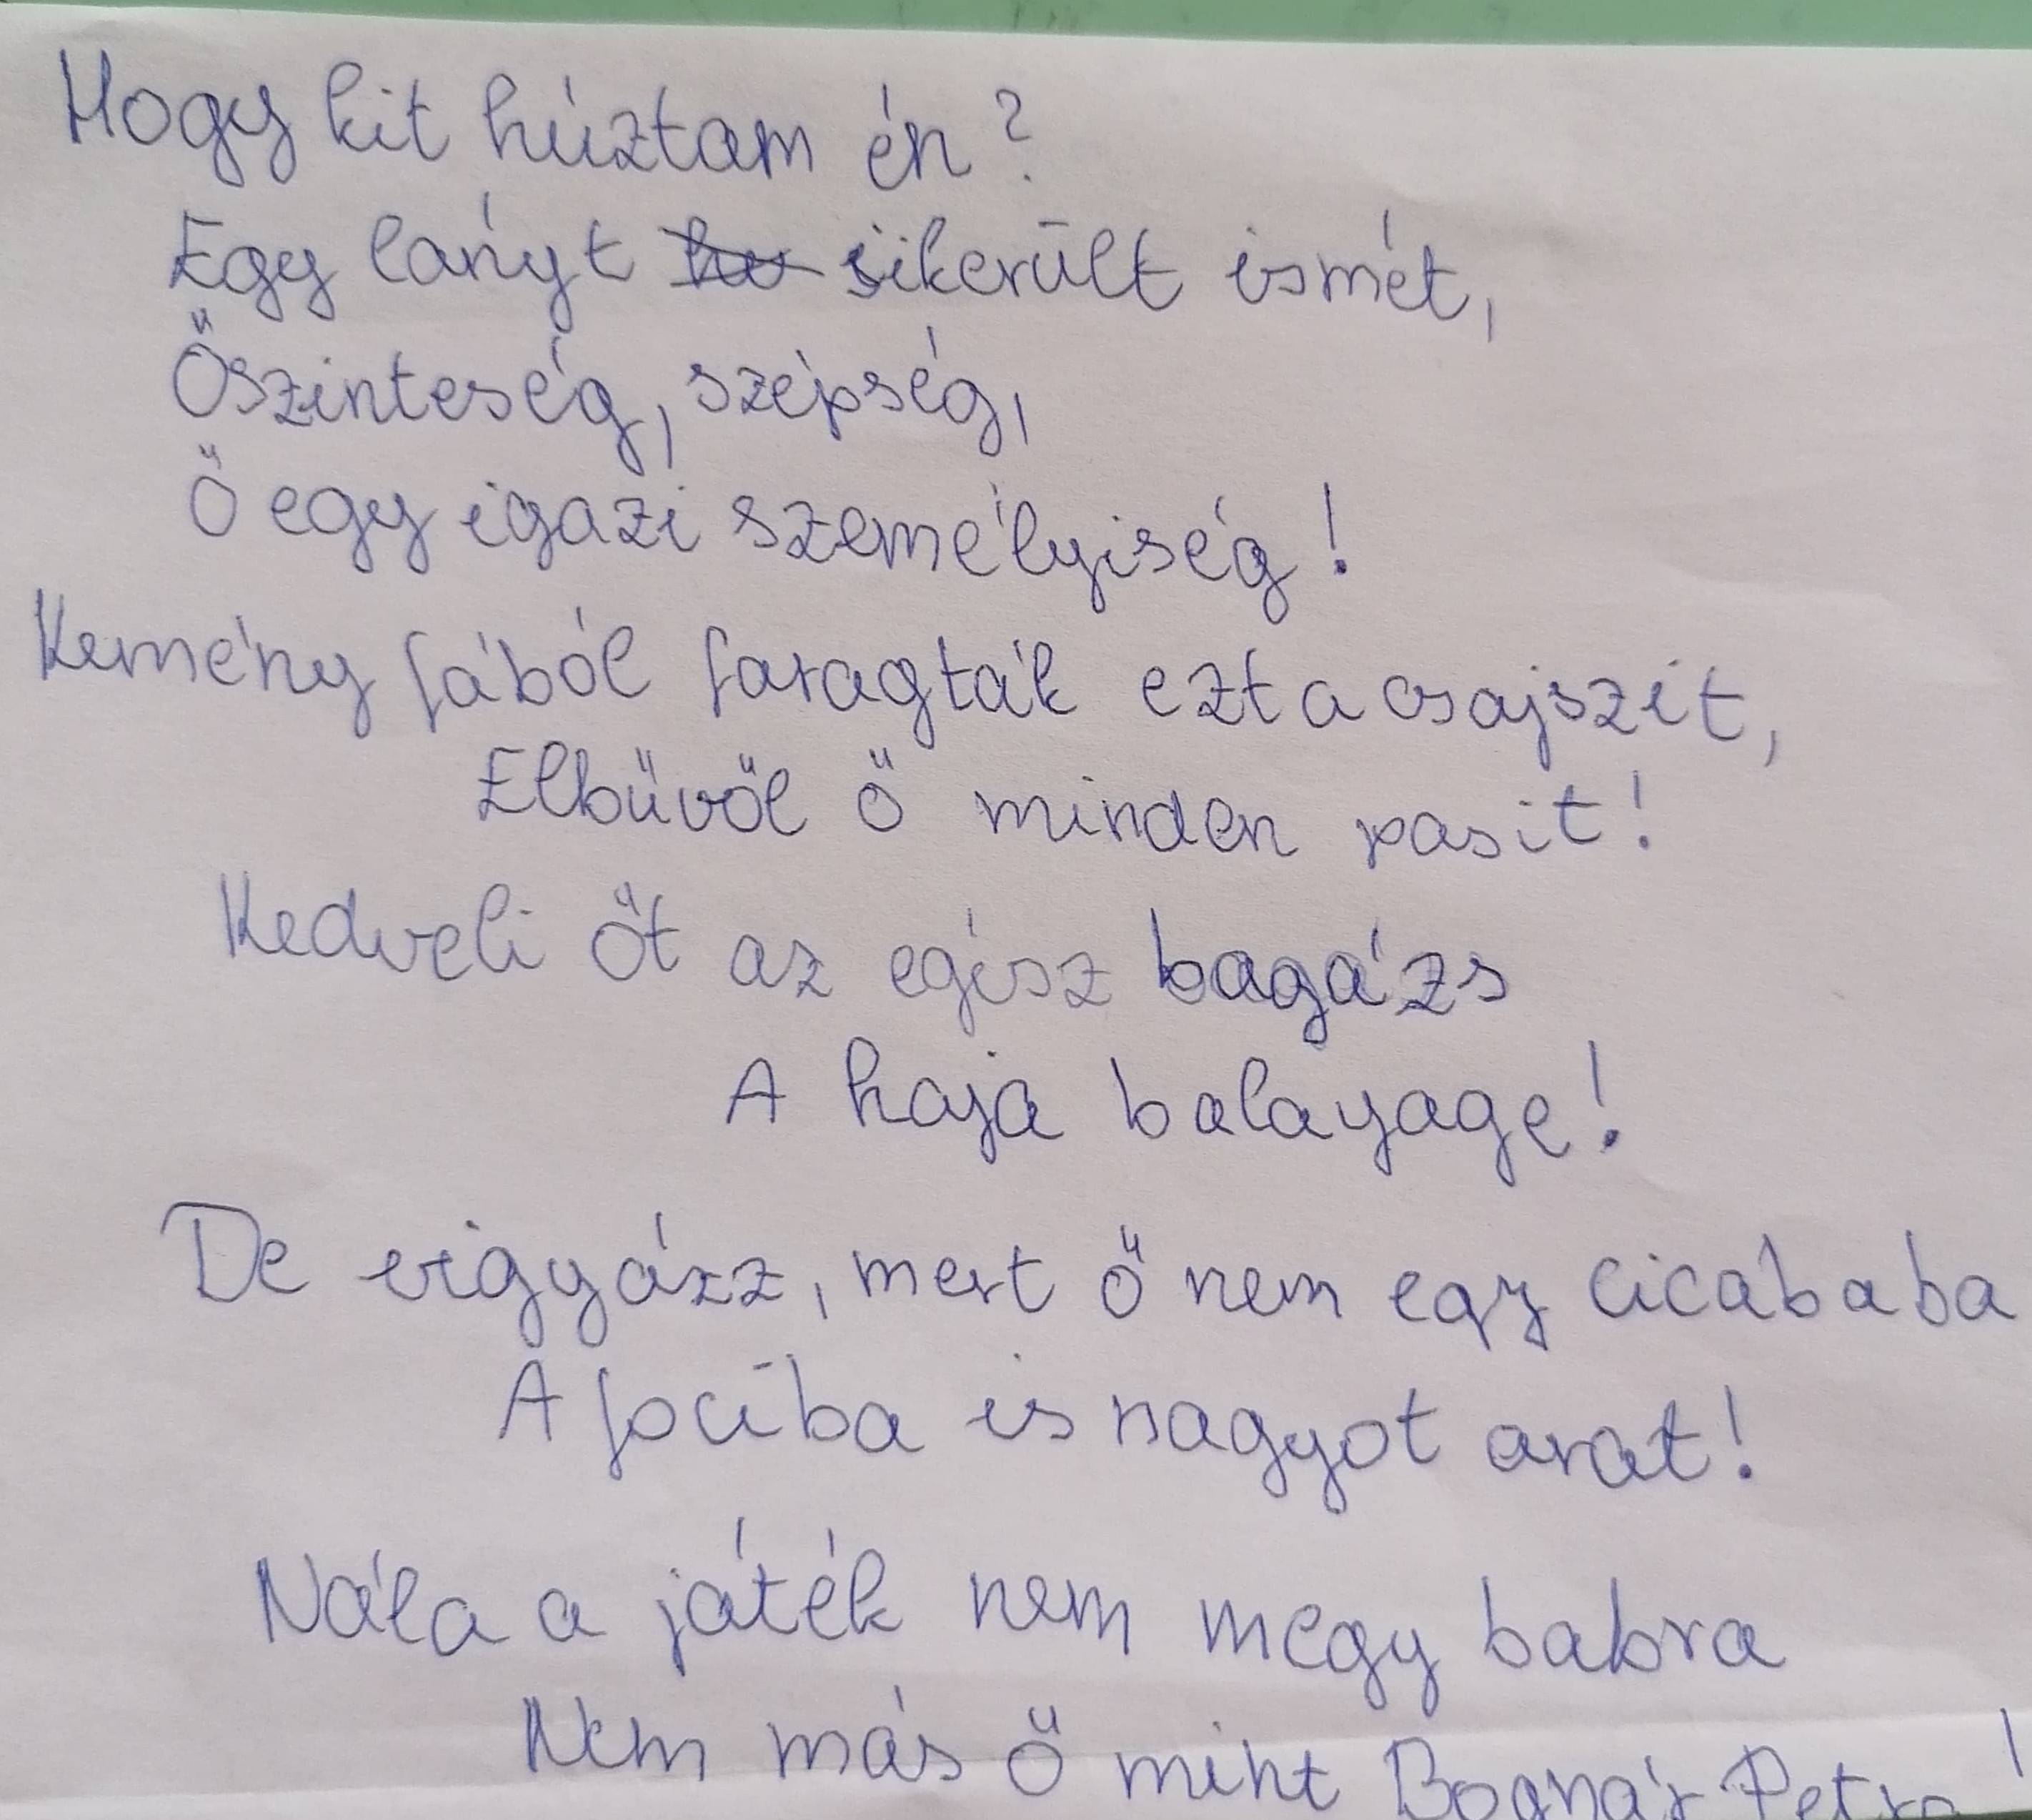 Hogy kit húztam én?
Egy lányt sikerült ismét,
Őszinteség, szépség,
Ő egy igazi személyiség!
Kemény fából faragták ezt a csajszit,
Elbűvöl ő minden pasit!
Kedveli őt az egész bagázs
A haja balayage!
De vigyázz, mert ő nem egy cicababa
A fociba is nagyot arat!
Nála a játék nem megy babra
Nem más ő mint Bognár Petra!